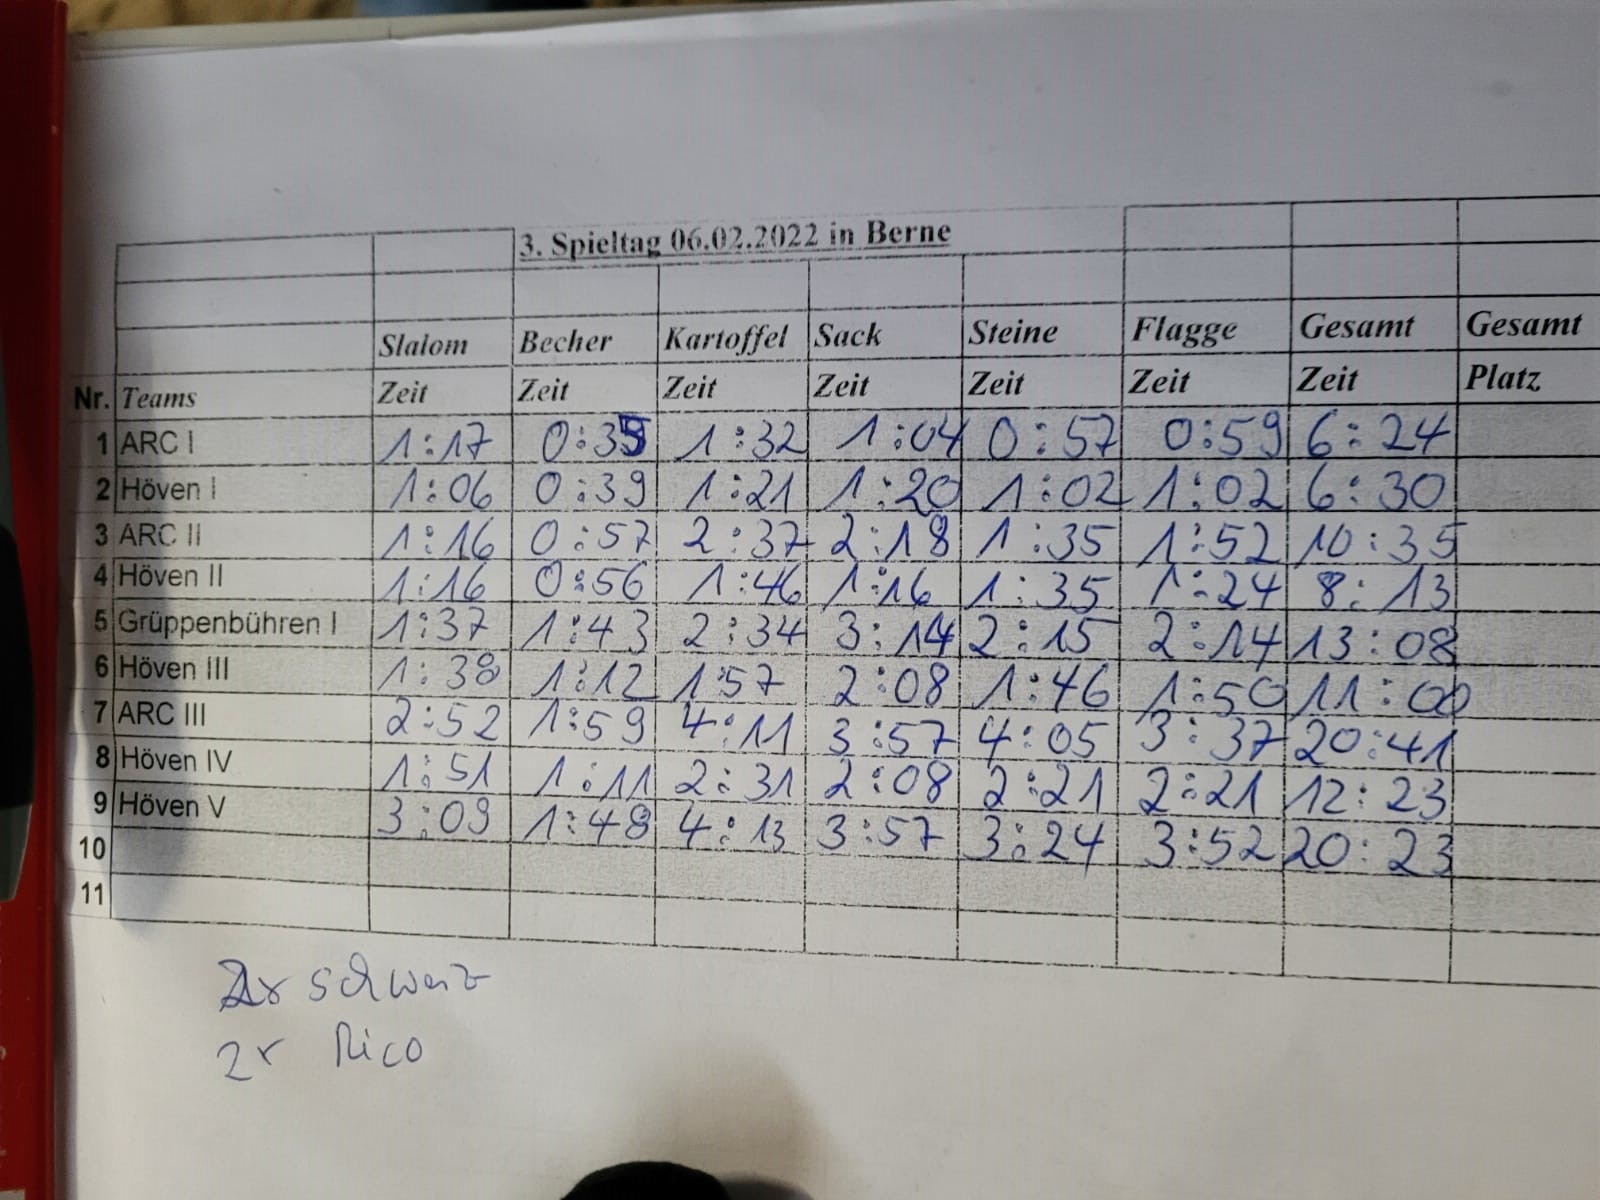 3. Spieltag 06.02.2022 in Berne
Slalom Becher Kartoffel Sack Steine Flagge Gesamt Gesamt
Nr. Teams Zeit Zeit Zeit Zeit Zeit Zeit Zeit Platz
1 ARC I 1:17 0:35 1:32 1:04 0:57 0:59 6:24
2 Höven I 1:06 0:39 1:21 1:20 1:02 1:02 6:30
3 ARC II 1:16 0:57 2:37 2:18 1:35 1:52 10:35
4 Höven II 1:16 0:56 1:46 1:16 1:35 1:24 8:13
5 Grüppenbühren I 1:37 1:43 2:34 3:14 2:15 2:14 13:08
6 Höven III 1:38 1:12 1:57 2:08 1:46 1:50 11:00
7 ARC III 2:52 1:59 4:11 3:57 4:05 3:37 20:41
8 Höven IV 1:51 1:11 2:31 2:08 2:21 2:21 12:23
9 Höven V 3:09 1:48 4:13 3:57 3:24 3:52 20:23
10
11
2x schwarz
2x Rico